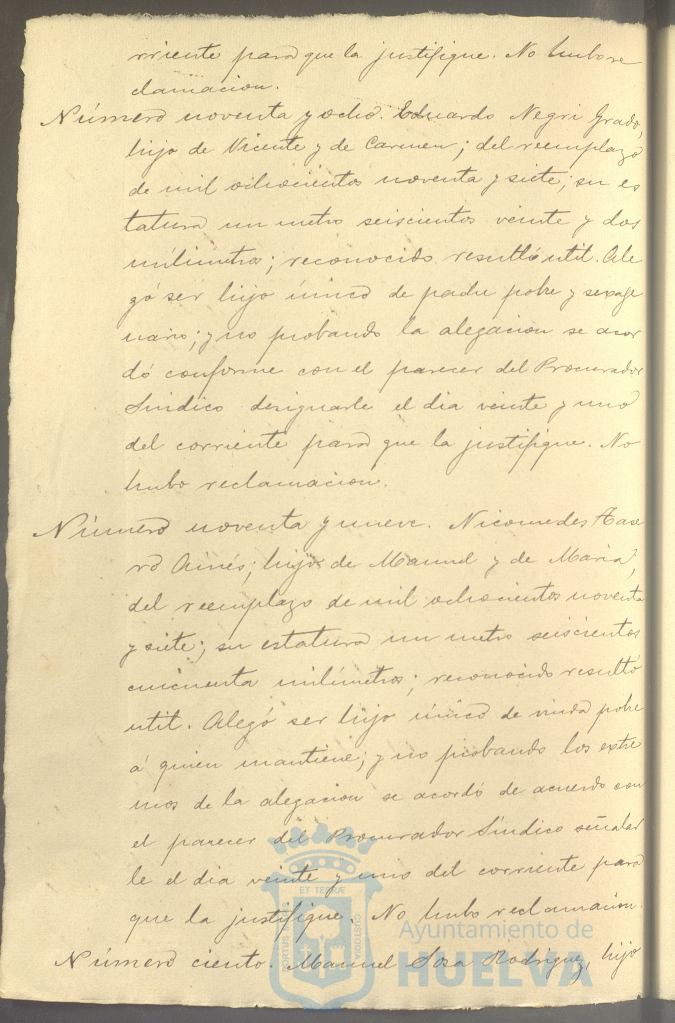 rriente para que la justifique. No hubo re
clamacion.
Número noventa y ocho. Eduardo Negri Grado,
hijo de Vicente y de Carmen; del reemplazo
de mil ochocientos noventa y siete; su es
tatura un metro seiscientos veinte y dos
milimetros; reconocido resultó util. Ale
gó ser hijo único de padre pobre y sexage
nario; y no probando la alegacion se acor
dó conforme con el parecer del Procurador
Sindico designarle el dia veinte y uno
del corriente para que la justifique. No
hubo reclamacion.
Número noventa y nueve. Nicomedes
hijo de Manuel y de Maria,
del reemplazo de mil ochocientos noventa
y siete; su estatura un metro seiscientos
cincuenta milímetros; reconocido resultó
util. Alegó ser hijo único de viuda pobre
á quien mantiene; y no probando los extre
mos de la alegacion se acordó de acuerdo con
el parecer del Procurador Síndico señalar
le el dia veinte y uno del corriente para
que la justifique. No hubo reclamación.
Número ciento. Manuel Sosa Rodriguez, hijo
ET TERRÆ
CUSTODIA
PORTUS MARIS
Ayuntamiento de
HUELVA